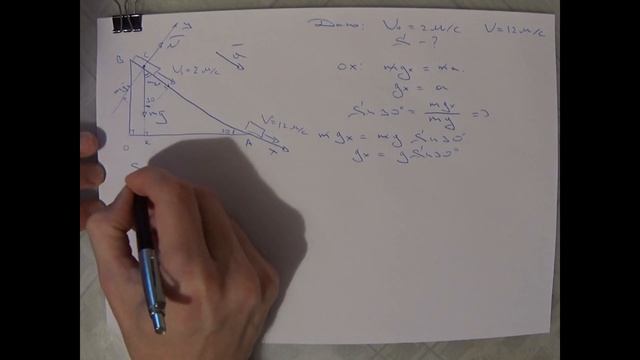 Дано: V₀ = 2 м/с V = 12 м/с
S - ?
ox: mgx = ma.
gx = a
Sin 30° = mgx / mg =>
mgx = mg Sin 30°
gx = g Sin 30°
y
N
a
B
C
V₁ = 2 м/с
30
mg
V = 12 м/с
30
O
K
A
X
S